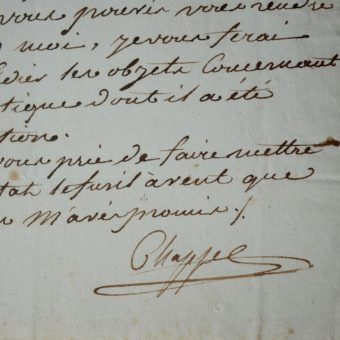 vous pouvés vous rendre
moi, je vous ferai
les objets Concernant
tique dont il a été
tion.
vous prie de faire mettre
tat le fusil avent que
m'avés promis /.
Chappe